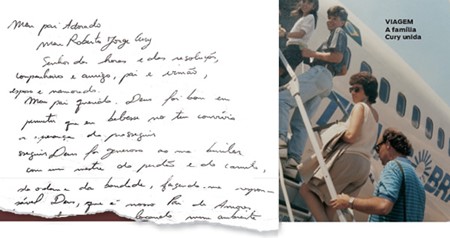 Meu pai Adorado
Meu Roberto Jorge Cury
Senhor das horas e das resoluções,
companheiro e amigo, pai e irmão,
esposo e namorado.
Meu pai querido. Deus foi bom em
que eu bebesse no teu convívio
a esperança de prosseguir
Deus foi generoso ao me
com um mestre do perdão e do carinho,
da ordem e da bondade, fazendo-me
Deus, que é nosso Pai de Amor,
num ambiente
VIAGEM
A família
Cury unida
BRA